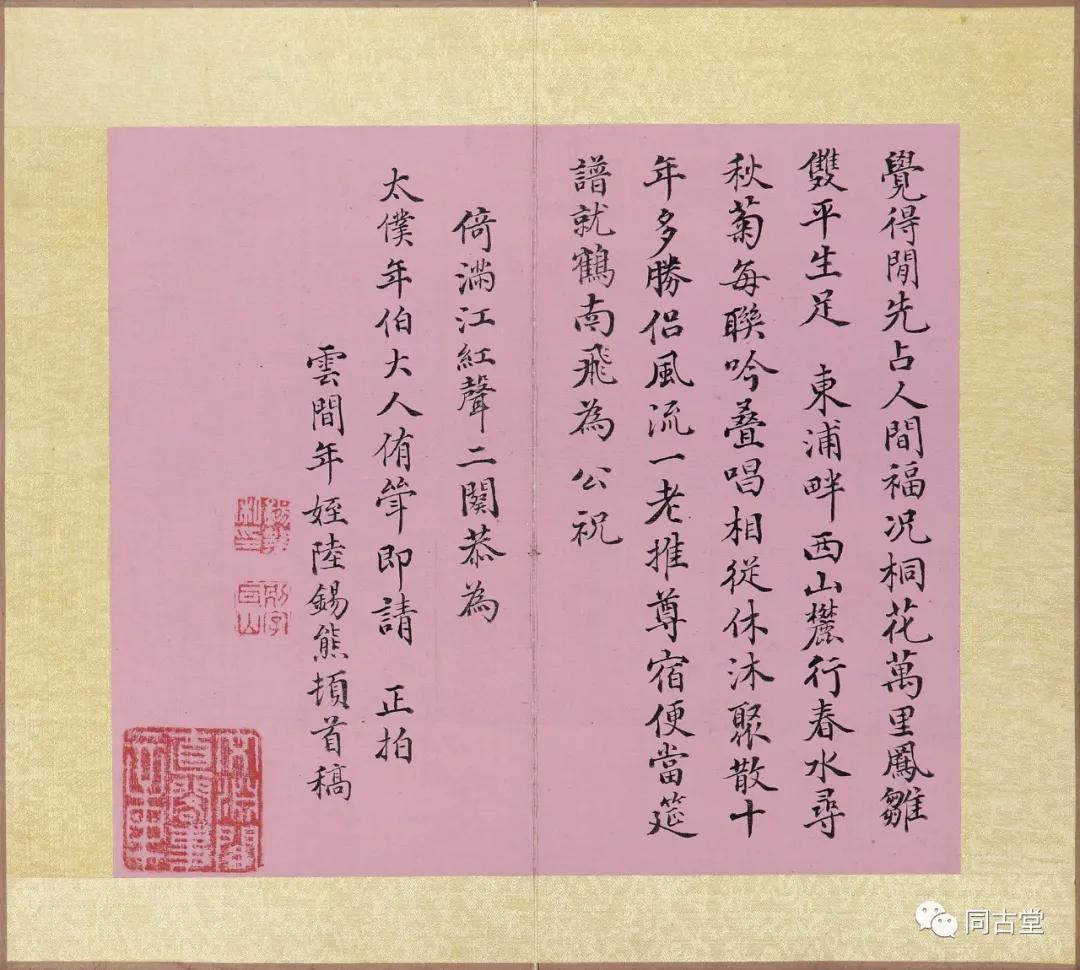 覺得閒先占人間福况桐花萬里鳳雛
雙平生足　東浦畔西山麓行春水尋
秋菊每聯吟疊唱相從休沐聚散十
年多勝侣風流一老推尊宿便當筵
譜就鶴南飛為公祝
倚滿江紅聲二闋恭為
太僕年伯大人侑觴即請　正拍
雲間年姪陸錫熊頓首稿
同古堂